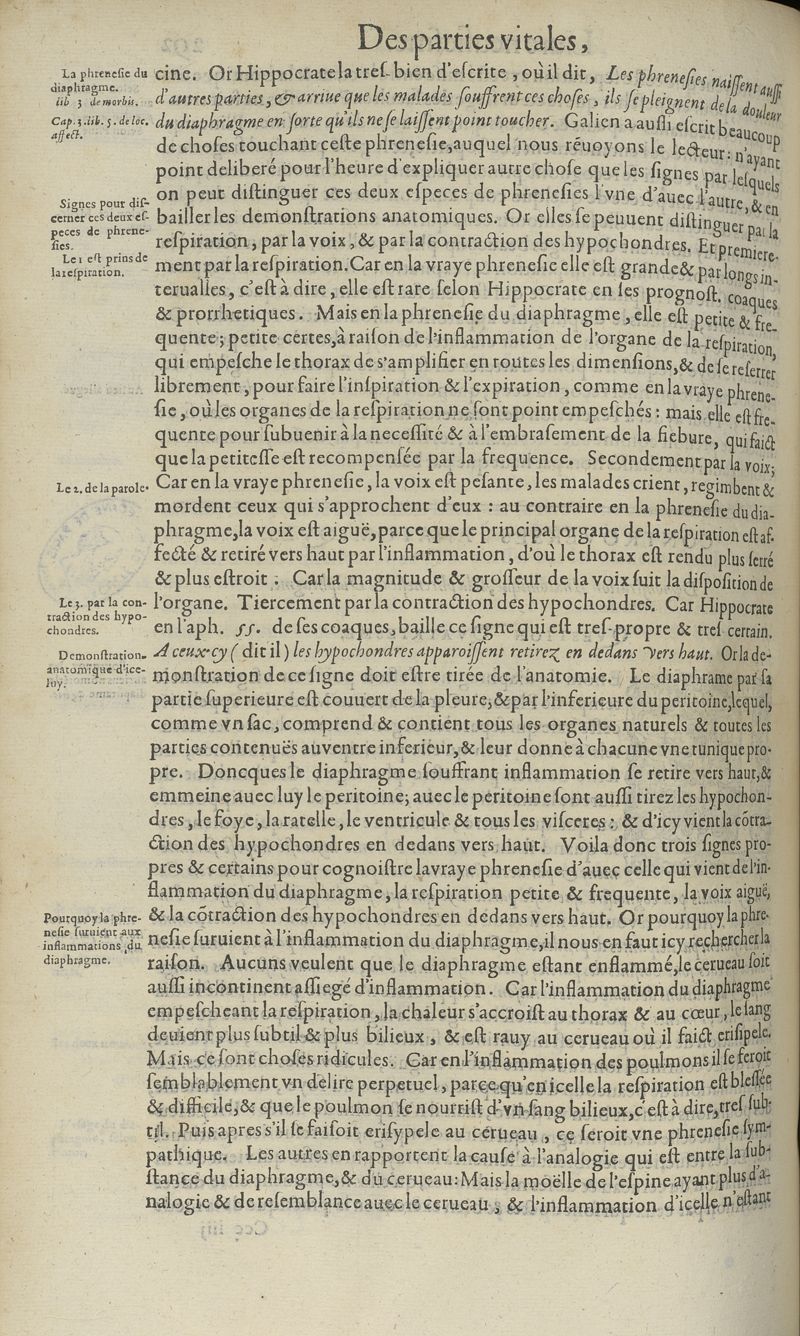 Des parties vitales,
La phrenesie du
diaphragme.
lib 3 de morbis.
Cap. 3. lib. 5. de loc.
affect.
cine. Or Hippocrate la treſ-bien d'eſcrite, où il dit, Les phreneſies naiſſent auſſi
d'autres parties, & arriue que les malades ſouffrent ces choſes, ils ſe pleignent de la douleur
du diaphragme en ſorte qu'ils ne ſe laiſſent point toucher. Galien a auſſi eſcrit beaucoup
de choſes touchant ceſte phreneſie, auquel nous réuoyons le lecteur: n'ayant
point deliberé pour l'heure d'expliquer autre choſe que les ſignes par leſquels
Signes pour diſ-
cerner ces deux eſ-
peces de phrene-
ſies.
on peut diſtinguer ces deux eſpeces de phreneſies l'vne d'auec l'autre, & en
bailler les demonſtrations anatomiques. Or elles ſe peuuent diſtinguer par la
reſpiration, par la voix, & par la contraction des hypochondres. Et premiere-
Le 1 eſt prins de
la reſpiration.
ment par la reſpiration. Car en la vraye phreneſie elle eſt grande & par longs in-
terualles, c'eſt à dire, elle eſt rare ſelon Hippocrate en ſes prognoſt. coaques
& prorrhetiques. Mais en la phreneſie du diaphragme, elle eſt petite & fre-
quente; petite certes, à raiſon de l'inflammation de l'organe de la reſpiration,
qui empeſche le thorax de s'amplifier en toutes les dimenſions, & de ſe reſerrer
librement, pour faire l'inſpiration & l'expiration, comme en la vraye phrene-
ſie, où les organes de la reſpiration ne ſont point empeſchés: mais elle eſt fre-
quente pour ſubuenir à la neceſſité & à l'embraſement de la fiebure, qui faict
que la petiteſſe eſt recompenſée par la frequence. Secondement par la voix.
Le 2. de la parole.
Car en la vraye phreneſie, la voix eſt peſante, les malades crient, regimbent &
mordent ceux qui s'approchent d'eux : au contraire en la phreneſie du dia-
phragme, la voix eſt aiguë, parce que le principal organe de la reſpiration eſt af-
fecté & retiré vers haut par l'inflammation, d'où le thorax eſt rendu plus ſerré
& plus eſtroit. Car la magnitude & groſſeur de la voix ſuit la diſpoſition de
Le 3. par la con-
traction des hypo-
chondres.
l'organe. Tiercement par la contraction des hypochondres. Car Hippocrate
en l'aph. 55. de ſes coaques, baille ce ſigne qui eſt treſ-propre & treſ certain.
Demonſtration
anatomique d'ice-
luy.
A ceux-cy (dit il) les hypochondres apparoiſſent retirez en dedans vers haut. Or la de-
monſtration de ce ſigne doit eſtre tirée de l'anatomie. Le diaphrame par ſa
partie ſuperieure eſt couuert de la pleure, & par l'inferieure du peritoine, lequel,
comme vn ſac, comprend & contient tous les organes naturels & toutes les
parties contenuës au ventre inferieur, & leur donne à chacune vne tunique pro-
pre. Doncques le diaphragme ſouffrant inflammation ſe retire vers haut, &
emmeine auec luy le peritoine; auec le peritoine ſont auſſi tirez les hypochon-
dres, le foye, la ratelle, le ventricule & tous les viſceres: & d'icy vient la cōtra-
ction des hypochondres en dedans vers haut. Voila donc trois ſignes pro-
pres & certains pour cognoiſtre la vraye phreneſie d'auec celle qui vient de l'in-
flammation du diaphragme, la reſpiration petite & frequente, la voix aiguë,
Pourquoy la phre-
neſie ſuruient aux
inflammations du
diaphragme.
& la cōtraction des hypochondres en dedans vers haut. Or pourquoy la phre-
neſie ſuruient à l'inflammation du diaphragme, il nous en faut icy rechercher la
raiſon. Aucuns veulent que le diaphragme eſtant enflammé, le cerueau ſoit
auſſi incontinent aſſiegé d'inflammation. Car l'inflammation du diaphragme
empeſcheant la reſpiration, la chaleur s'accroiſt au thorax & au cœur, le ſang
deuient plus ſubtil & plus bilieux, & eſt rauy au cerueau où il faict eriſipele.
Mais ce ſont choſes ridicules. Car en l'inflammation des poulmons il ſe feroit
ſemblablement vn delire perpetuel, parce qu'en icelle la reſpiration eſt bleſſée
& difficile, & que le poulmon ſe nourriſt d'vn ſang bilieux, c'eſt à dire, treſ ſub-
til. Puis apres s'il ſe faiſoit eriſypele au cerueau, ce ſeroit vne phreneſie ſym-
pathique. Les autres en rapportent la cauſe à l'analogie qui eſt entre la ſub-
ſtance du diaphragme, & du cerueau: Mais la moëlle de l'eſpine ayant plus d'a-
nalogie & de reſemblance auec le cerueau, & l'inflammation d'icelle n'eſtant